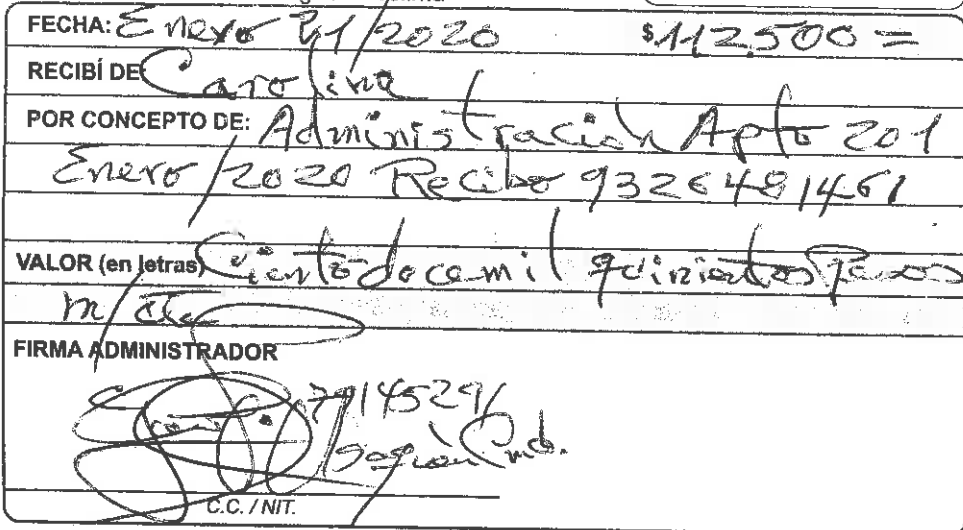 FECHA: Enero 21/2020 $112.500=
RECIBÍ DE: Carolina
POR CONCEPTO DE: Administración Apto 201
Enero/2020 Recibo 9326481461
VALOR (en letras) Ciento doce mil quinientos Pesos
m/cte
FIRMA ADMINISTRADOR
C.C. / NIT.